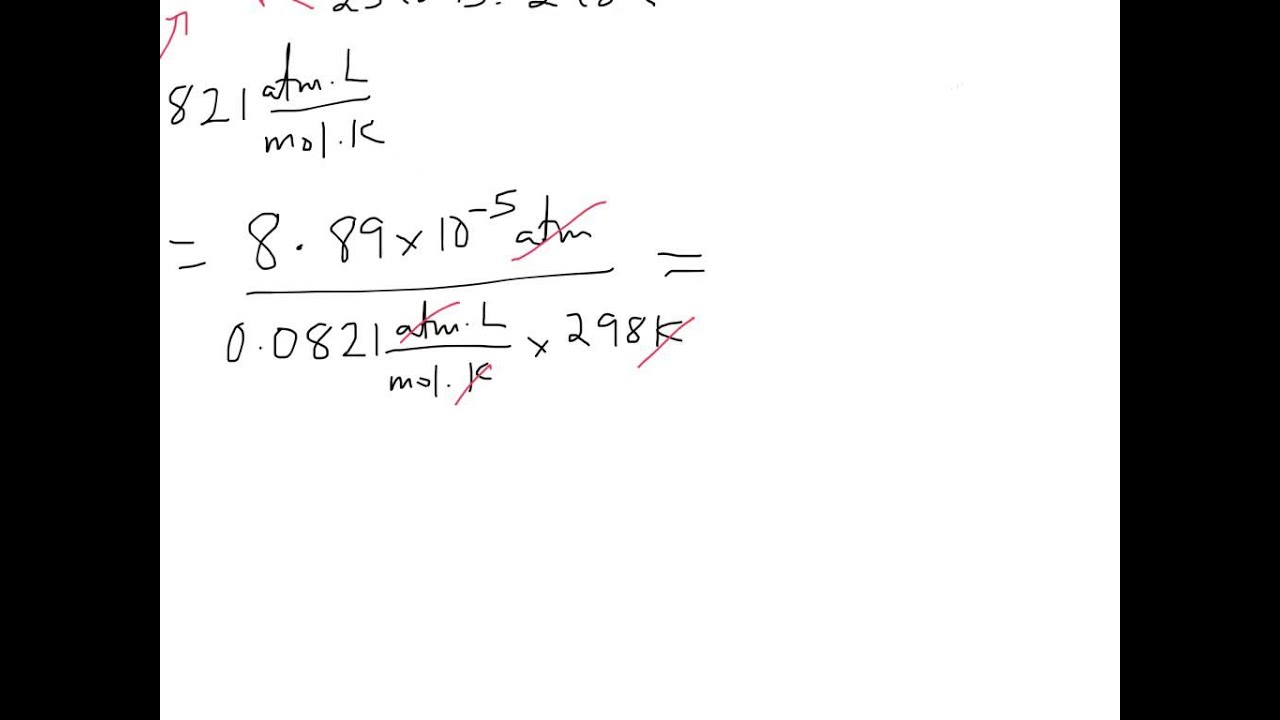 821 atm.L
mol.K
= 8.89×10⁻⁵ atm =
0.0821 atm.L × 298K
mol.K